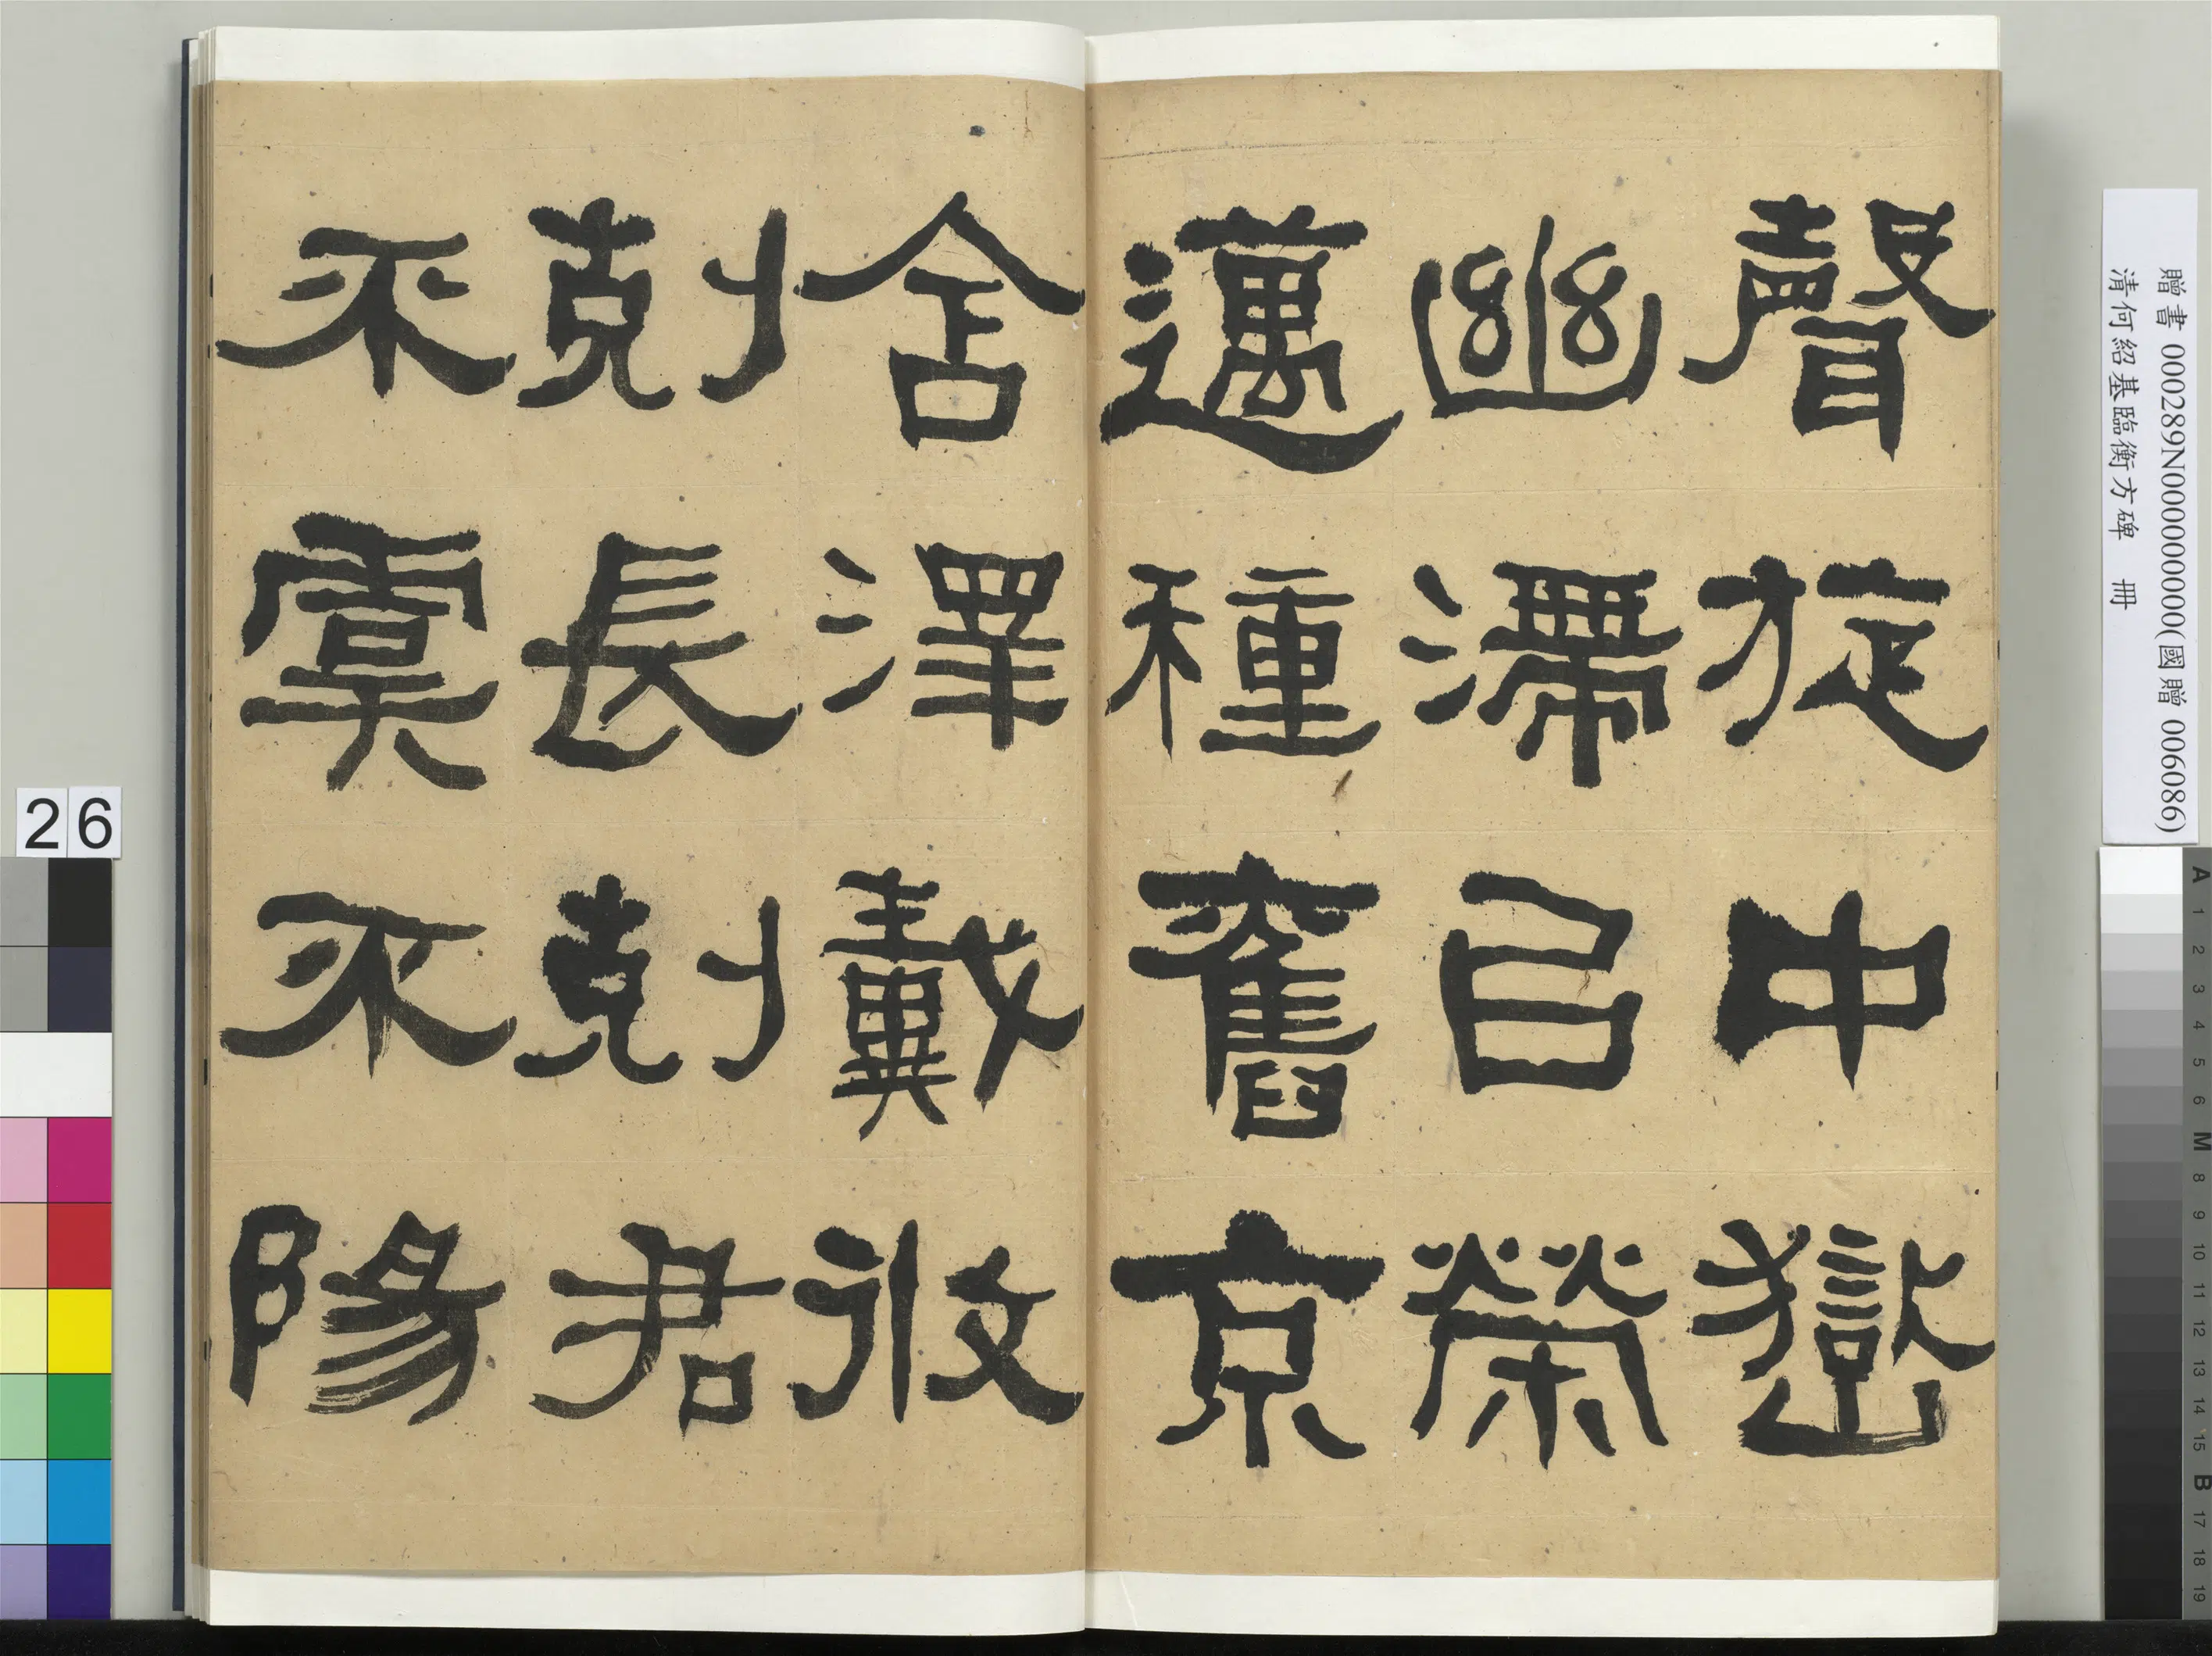 聲旋中嶽
幽滯以榮
邁種舊京
舍澤戴仁
剋長剋君
不虞不陽
贈書 000289N000000000(國贈 006086)
清何紹基臨衡方碑 冊
26
A 1 2 3 4 5 6 M 8 9 10 11 12 13 14 15 B 17 18 19